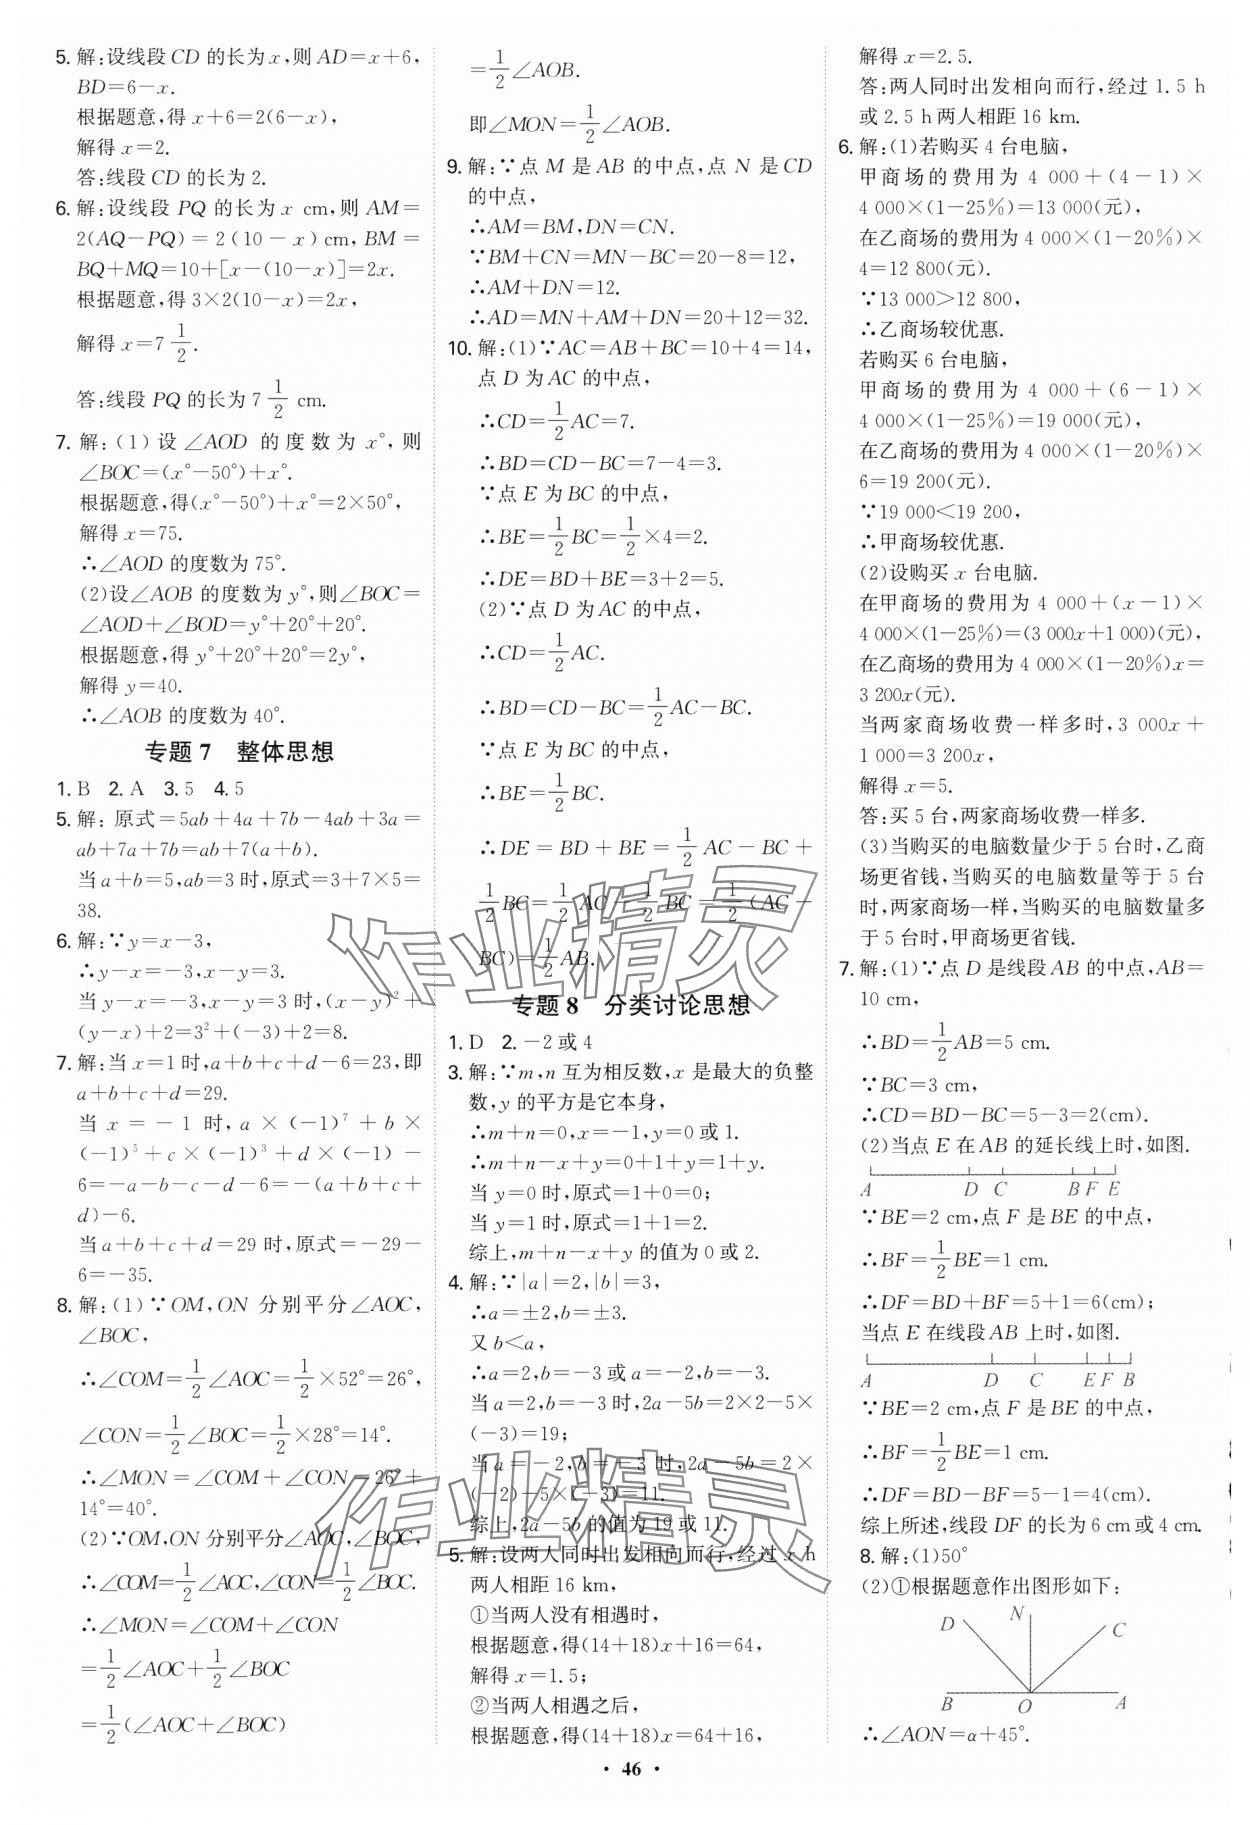 5. 解:设线段 CD 的长为 x,则 AD=x+6,
BD=6-x.
根据题意,得 x+6=2(6-x),
解得 x=2.
答:线段 CD 的长为 2.
6. 解:设线段 PQ 的长为 x cm,则 AM=
2(AQ-PQ)=2(10-x)cm,BM=
BQ+MQ=10+[x-(10-x)]=2x.
根据题意,得 3×2(10-x)=2x,
解得 x=7 1/2.
答:线段 PQ 的长为 7 1/2 cm.
7. 解:(1)设∠AOD 的度数为 x°,则
∠BOC=(x°-50°)+x°.
根据题意,得(x°-50°)+x°=2×50°,
解得 x=75.
∴∠AOD 的度数为 75°.
(2)设∠AOB 的度数为 y°,则∠BOC=
∠AOD+∠BOD=y°+20°+20°.
根据题意,得 y°+20°+20°=2y°,
解得 y=40.
∴∠AOB 的度数为 40°.
专题 7 整体思想
1. B 2. A 3. 5 4. 5
5. 解:原式=5ab+4a+7b-4ab+3a=
ab+7a+7b=ab+7(a+b).
当 a+b=5,ab=3 时,原式=3+7×5=
38.
6. 解:∵y=x-3,
∴y-x=-3,x-y=3.
当 y-x=-3,x-y=3 时,(x-y)²+
(y-x)+2=3²+(-3)+2=8.
7. 解:当 x=1 时,a+b+c+d-6=23,即
a+b+c+d=29.
当 x=-1 时,a×(-1)⁷+b×
(-1)⁵+c×(-1)³+d×(-1)-
6=-a-b-c-d-6=-(a+b+c+
d)-6.
当 a+b+c+d=29 时,原式=-29-
6=-35.
8. 解:(1)∵OM,ON 分别平分∠AOC,
∠BOC,
∴∠COM=1/2∠AOC=1/2×52°=26°,
∠CON=1/2∠BOC=1/2×28°=14°.
∴∠MON=∠COM+∠CON=26°+
14°=40°.
(2)∵OM,ON 分别平分∠AOC,∠BOC,
∴∠COM=1/2∠AOC,∠CON=1/2∠BOC.
∴∠MON=∠COM+∠CON
=1/2∠AOC+1/2∠BOC
=1/2(∠AOC+∠BOC)
=1/2∠AOB.
即∠MON=1/2∠AOB.
9. 解:∵点 M 是 AB 的中点,点 N 是 CD
的中点,
∴AM=BM,DN=CN.
∵BM+CN=MN-BC=20-8=12,
∴AM+DN=12.
∴AD=MN+AM+DN=20+12=32.
10. 解:(1)∵AC=AB+BC=10+4=14,
点 D 为 AC 的中点,
∴CD=1/2AC=7.
∴BD=CD-BC=7-4=3.
∵点 E 为 BC 的中点,
∴BE=1/2BC=1/2×4=2.
∴DE=BD+BE=3+2=5.
(2)∵点 D 为 AC 的中点,
∴CD=1/2AC.
∴BD=CD-BC=1/2AC-BC.
∵点 E 为 BC 的中点,
∴BE=1/2BC.
∴DE=BD+BE=1/2AC-BC+
1/2BC=1/2AC-1/2BC=1/2(AC-
BC)=1/2AB.
专题 8 分类讨论思想
1. D 2. -2 或 4
3. 解:∵m,n 互为相反数,x 是最大的负整
数,y 的平方是它本身,
∴m+n=0,x=-1,y=0 或 1.
∴m+n-x+y=0+1+y=1+y.
当 y=0 时,原式=1+0=0;
当 y=1 时,原式=1+1=2.
综上,m+n-x+y 的值为 0 或 2.
4. 解:∵|a|=2,|b|=3,
∴a=±2,b=±3.
又 b<a,
∴a=2,b=-3 或 a=-2,b=-3.
当 a=2,b=-3 时,2a-5b=2×2-5×
(-3)=19;
当 a=-2,b=-3 时,2a-5b=2×
(-2)-5×(-3)=11.
综上,2a-5b 的值为 19 或 11.
5. 解:设两人同时出发相向而行,经过 x h
两人相距 16 km,
①当两人没有相遇时,
根据题意,得(14+18)x+16=64,
解得 x=1.5;
②当两人相遇之后,
根据题意,得(14+18)x=64+16,
解得 x=2.5.
答:两人同时出发相向而行,经过 1.5 h
或 2.5 h 两人相距 16 km.
6. 解:(1)若购买 4 台电脑,
甲商场的费用为 4 000+(4-1)×
4 000×(1-25%)=13 000(元),
在乙商场的费用为 4 000×(1-20%)×
4=12 800(元).
∵13 000>12 800,
∴乙商场较优惠.
若购买 6 台电脑,
甲商场的费用为 4 000+(6-1)×
4 000×(1-25%)=19 000(元),
在乙商场的费用为 4 000×(1-20%)×
6=19 200(元).
∵19 000<19 200,
∴甲商场较优惠.
(2)设购买 x 台电脑.
在甲商场的费用为 4 000+(x-1)×
4 000×(1-25%)=(3 000x+1 000)(元),
在乙商场的费用为 4 000×(1-20%)x=
3 200x(元).
当两家商场收费一样多时,3 000x+
1 000=3 200x,
解得 x=5.
答:买 5 台,两家商场收费一样多.
(3)当购买的电脑数量少于 5 台时,乙商
场更省钱,当购买的电脑数量等于 5 台
时,两家商场一样,当购买的电脑数量多
于 5 台时,甲商场更省钱.
7. 解:(1)∵点 D 是线段 AB 的中点,AB=
10 cm,
∴BD=1/2AB=5 cm.
∵BC=3 cm,
∴CD=BD-BC=5-3=2(cm).
(2)当点 E 在 AB 的延长线上时,如图.
A D C B F E
∵BE=2 cm,点 F 是 BE 的中点,
∴BF=1/2BE=1 cm.
∴DF=BD+BF=5+1=6(cm);
当点 E 在线段 AB 上时,如图.
A D C E F B
∵BE=2 cm,点 F 是 BE 的中点,
∴BF=1/2BE=1 cm.
∴DF=BD-BF=5-1=4(cm).
综上所述,线段 DF 的长为 6 cm 或 4 cm.
8. 解:(1)50°
(2)①根据题意作出图形如下:
D N C
B O A
∴∠AON=α+45°.
· 46 ·
作业精灵
作业精灵